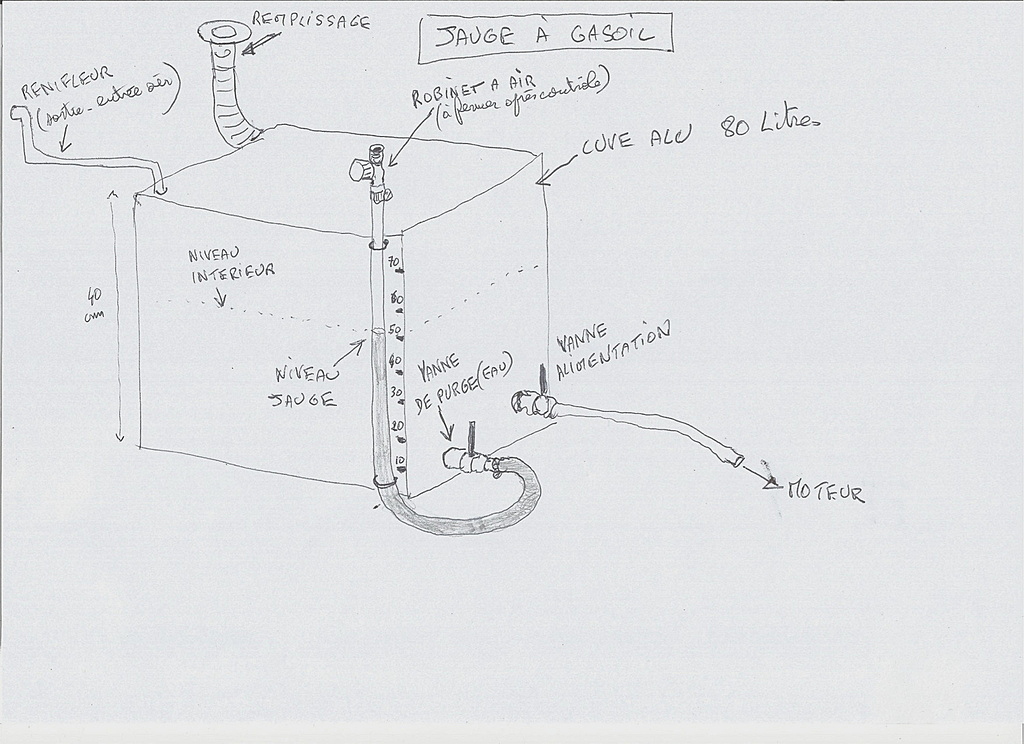 REMPLISSAGE
JAUGE À GASOIL
RENIFLEUR
(sortie-entrée air)
ROBINET A AIR
(à fermer après contrôle)
CUVE ALU 80 Litres
NIVEAU
INTERIEUR
40
cm
70
60
50
40
30
20
10
NIVEAU
JAUGE
VANNE
DE PURGE (EAU)
VANNE
ALIMENTATION
MOTEUR